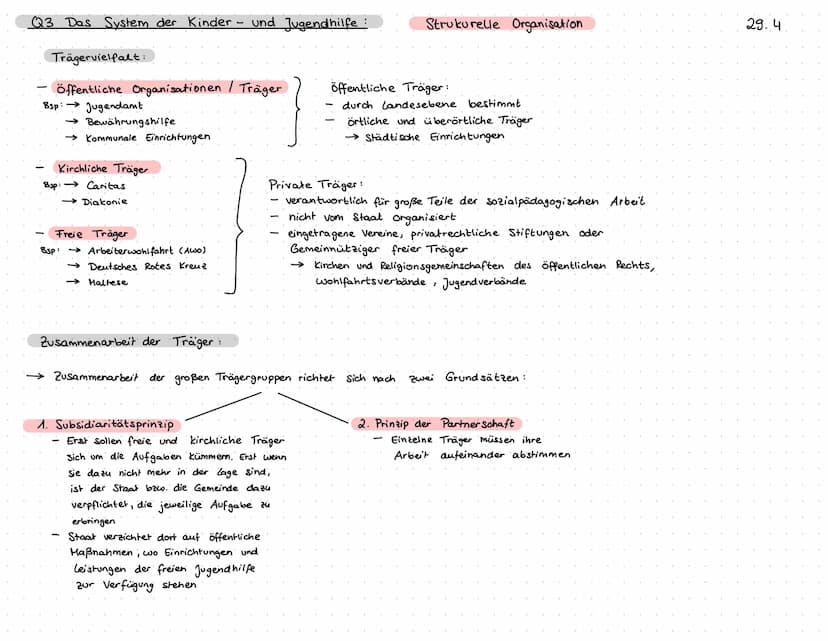 Q3 Das System der Kinder- und Jugendhilfe:
Strukurelle Organisation
29.4
Trägervielfalt:
- Öffentliche Organisationen / Träger
Bsp: → Jugendamt
→ Bewährungshilfe
→ Kommunale Einrichtungen
Öffentliche Träger:
- durch Landesebene bestimmt
- örtliche und überörtliche Träger
→ Städtische Einrichtungen
- Kirchliche Träger
Bsp: → Caritas
→ Diakonie
- Freie Träger
Bsp: → Arbeiterwohlfahrt (Awo)
→ Deutsches Rotes Kreuz
→ Maltese
Private Träger:
- verantwortlich für große Teile der sozialpädagogischen Arbeit
- nicht vom Staat organisiert
- eingetragene Vereine, privatrechtliche Stiftungen oder
Gemeinnütziger freier Träger
→ Kirchen und Religionsgemeinschaften des öffentlichen Rechts,
Wohlfahrtsverbände, Jugendverbände
Zusammenarbeit der Träger:
→ Zusammenarbeit der großen Trägergruppen richtet sich nach zwei Grundsätzen:
1. Subsidiaritätsprinzip
- Erst sollen freie und kirchliche Träger
sich um die Aufgaben kümmern. Erst wenn
sie dazu nicht mehr in der Lage sind,
ist der Staat bzw. die Gemeinde dazu
verpflichtet, die jeweilige Aufgabe zu
erbringen
- Staat verzichtet dort auf öffentliche
Maßnahmen, wo Einrichtungen und
Leistungen der freien Jugendhilfe
zur Verfügung stehen
2. Prinzip der Partnerschaft
- Einzelne Träger müssen ihre
Arbeit aufeinander abstimmen